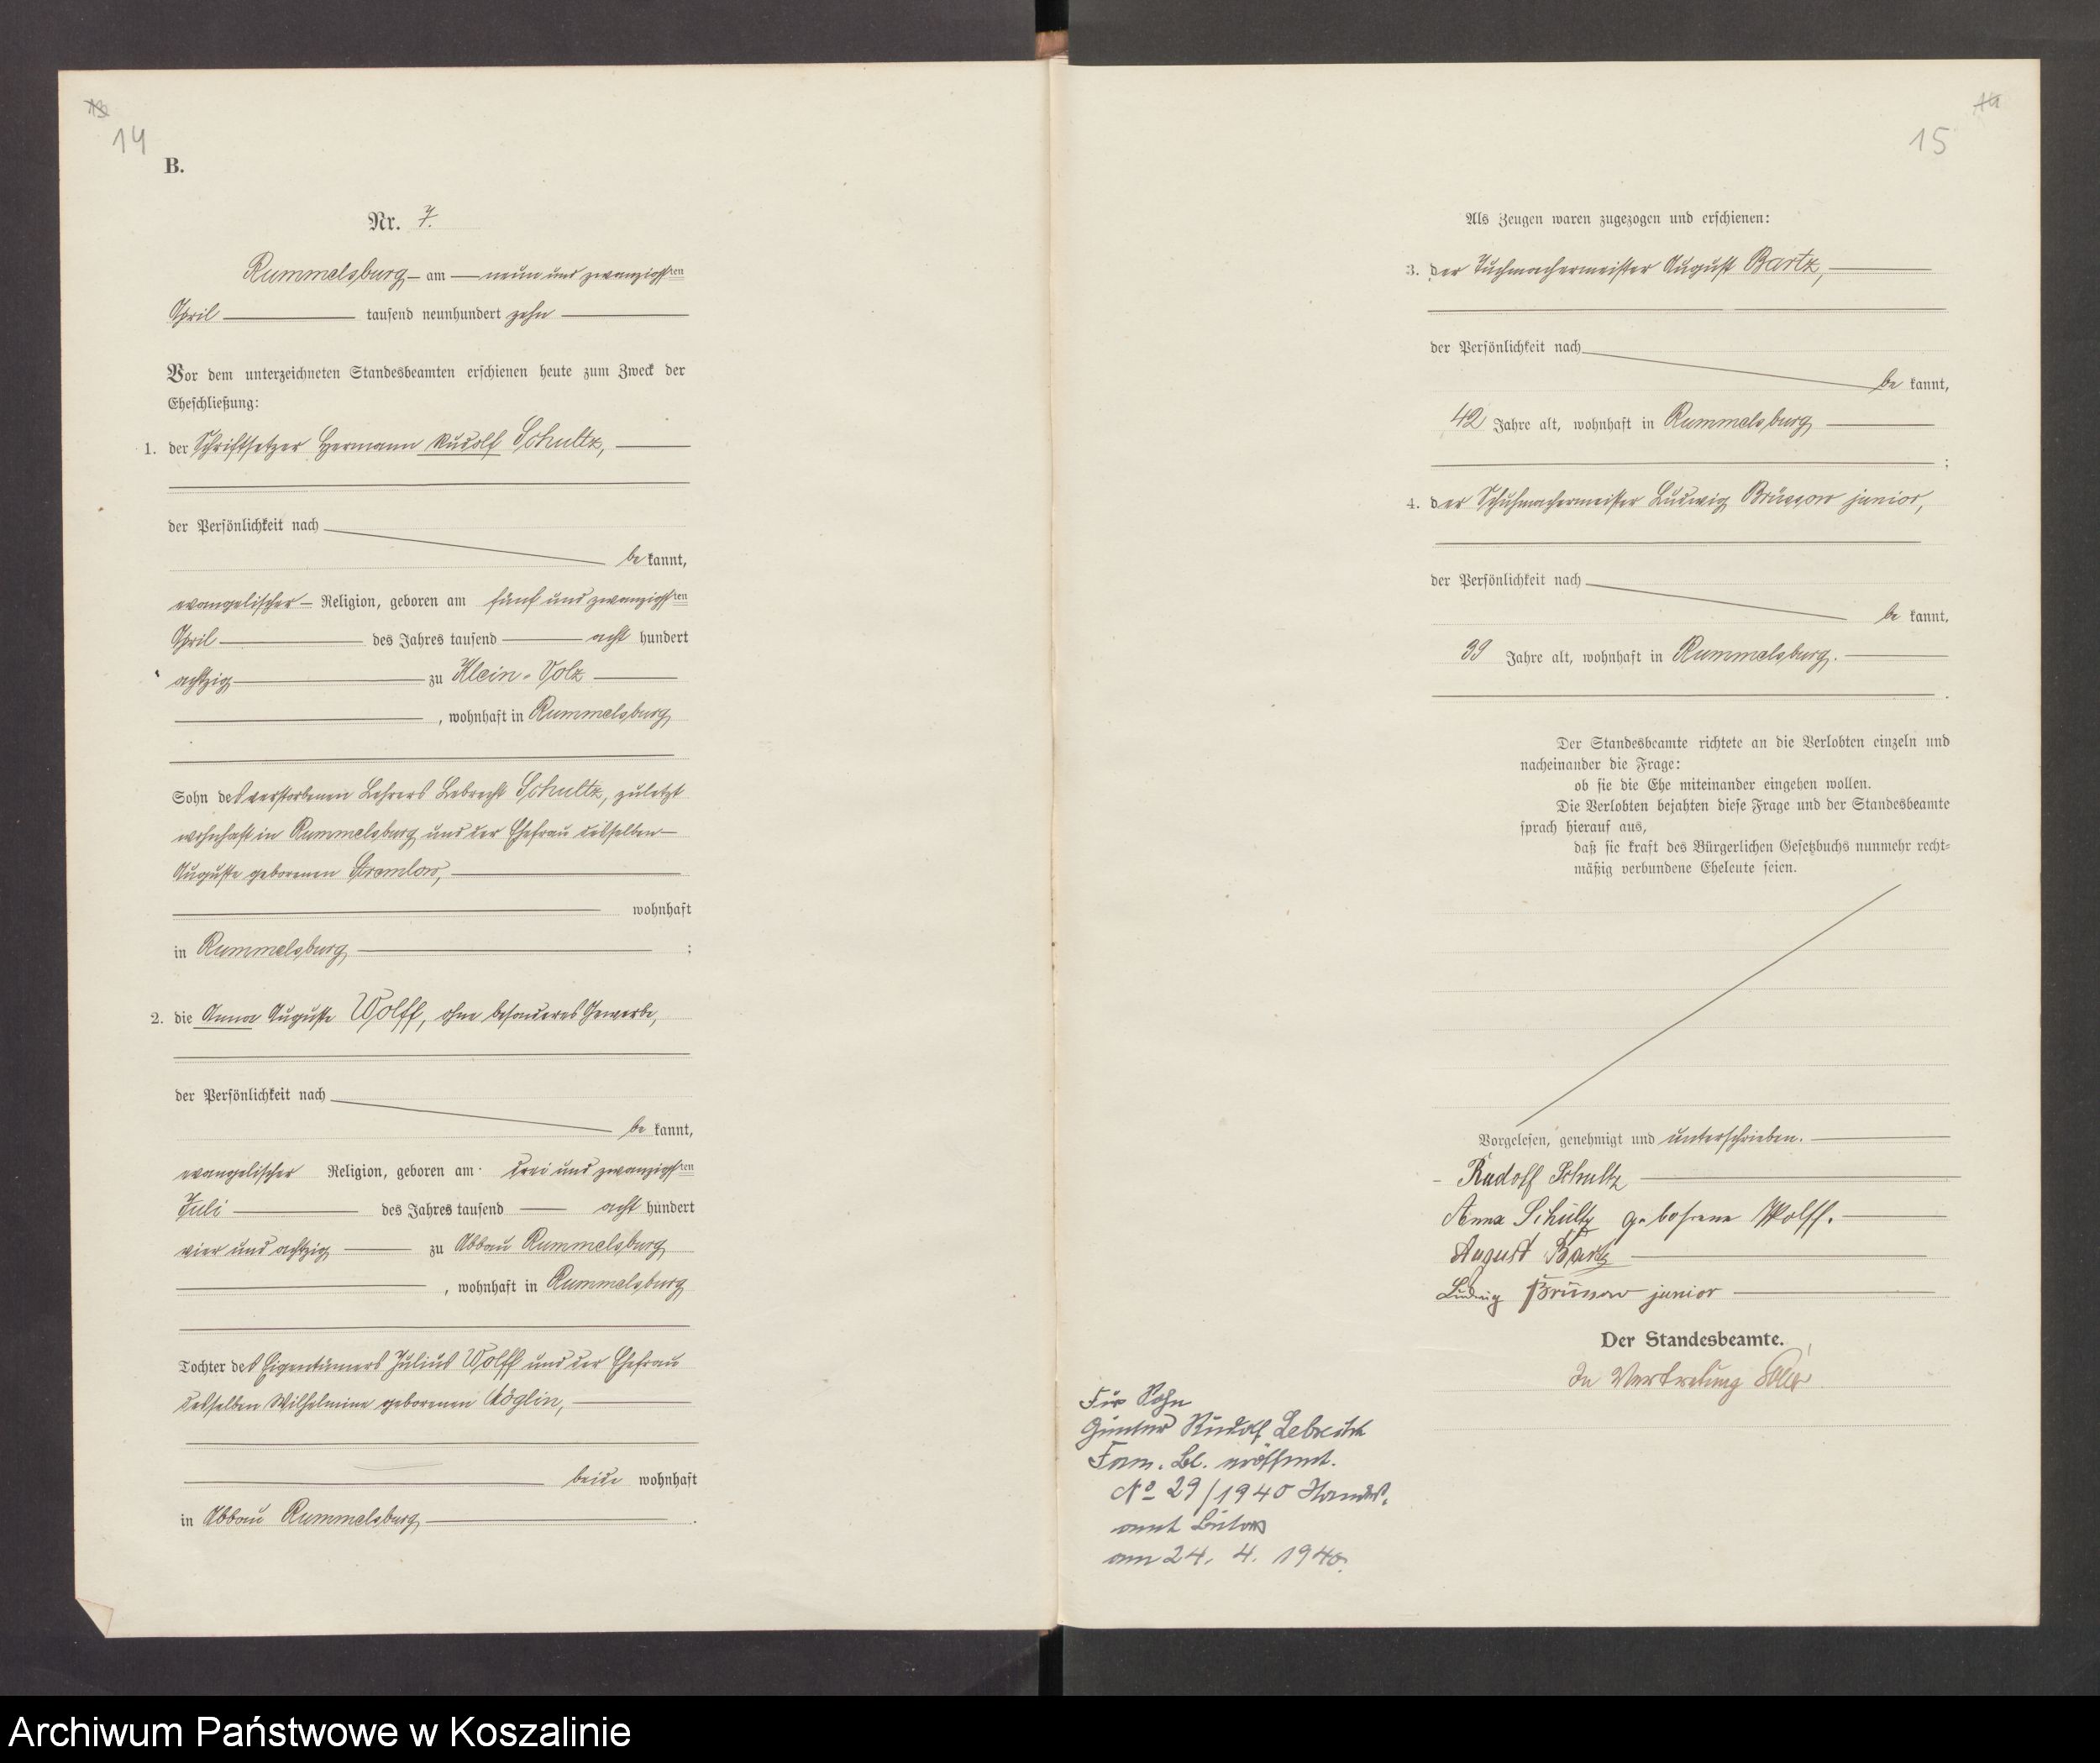 14
B.
Nr. 7.
Rummelsburg am neun und zwanzigsten
April tausend neunhundert zehn
Vor dem unterzeichneten Standesbeamten erschienen heute zum Zweck der
Eheschließung:
1. der Schriftsetzer Hermann Rudolf Schultz,
der Persönlichkeit nach
be kannt,
evangelischer Religion, geboren am fünf und zwanzigsten
April des Jahres tausend acht hundert
achtzig zu Klein-Volz
, wohnhaft in Rummelsburg
Sohn des verstorbenen Lehrers Lebrecht Schultz, zuletzt
wohnhaft in Rummelsburg und der Ehefrau desselben
Auguste geborenen
wohnhaft
in Rummelsburg ;
2. die Anna Auguste Wolff, ohne besonderes Gewerbe,
der Persönlichkeit nach
be kannt,
evangelischer Religion, geboren am drei und zwanzigsten
Juli des Jahres tausend acht hundert
vier und achtzig zu Abbau Rummelsburg
, wohnhaft in Rummelsburg
Tochter des Eigentümers Julius Wolff und der Ehefrau
desselben Wilhelmine geborenen
beide wohnhaft
in Abbau Rummelsburg .
15
Als Zeugen waren zugezogen und erschienen:
3. der Tuchmachermeister August Bartz,
der Persönlichkeit nach
be kannt,
42 Jahre alt, wohnhaft in Rummelsburg
;
4. der Schuhmachermeister Ludwig Brüssow junior,
der Persönlichkeit nach
be kannt,
39 Jahre alt, wohnhaft in Rummelsburg.
.
Der Standesbeamte richtete an die Verlobten einzeln und
nacheinander die Frage:
ob sie die Ehe miteinander eingehen wollen.
Die Verlobten bejahten diese Frage und der Standesbeamte
sprach hierauf aus,
daß sie kraft des Bürgerlichen Gesetzbuchs nunmehr recht-
mäßig verbundene Eheleute seien.
Vorgelesen, genehmigt und unterschrieben.
Rudolf Schultz
Anna Schultz geborene Wolff.
August Bartz
Ludwig Brüssow junior
Der Standesbeamte.
In Vertretung
Für Sohn
Günter Rudolf Lebrecht
Fam. Bl. eröffnet.
No 29/1940 Standes-
amt Bütow
am 24. 4. 1940.
Archiwum Państwowe w Koszalinie